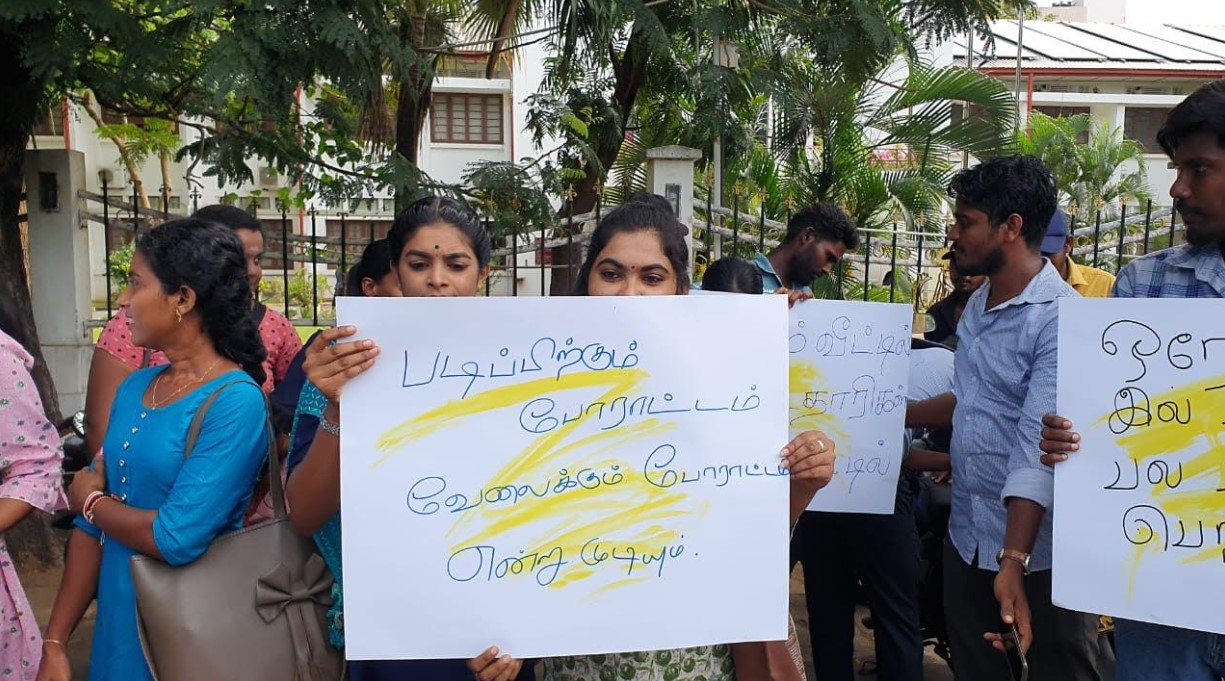 படிப்பிற்கும்
போராட்டம்
வேலைக்கும் போராட்டம்
என்று முடியும்.
வீட்டில்
தாரிகள்
பல